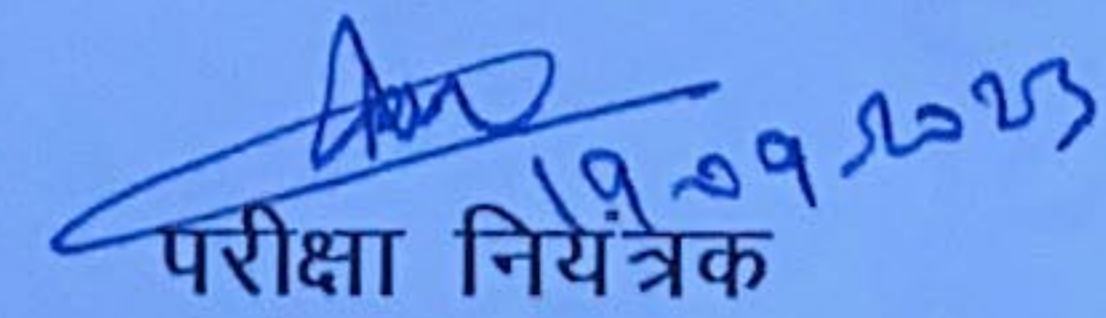 19.09.2023
परीक्षा नियंत्रक